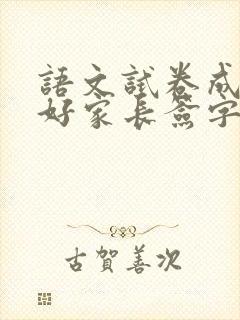 語文試卷成
好家長簽字
古賀善次